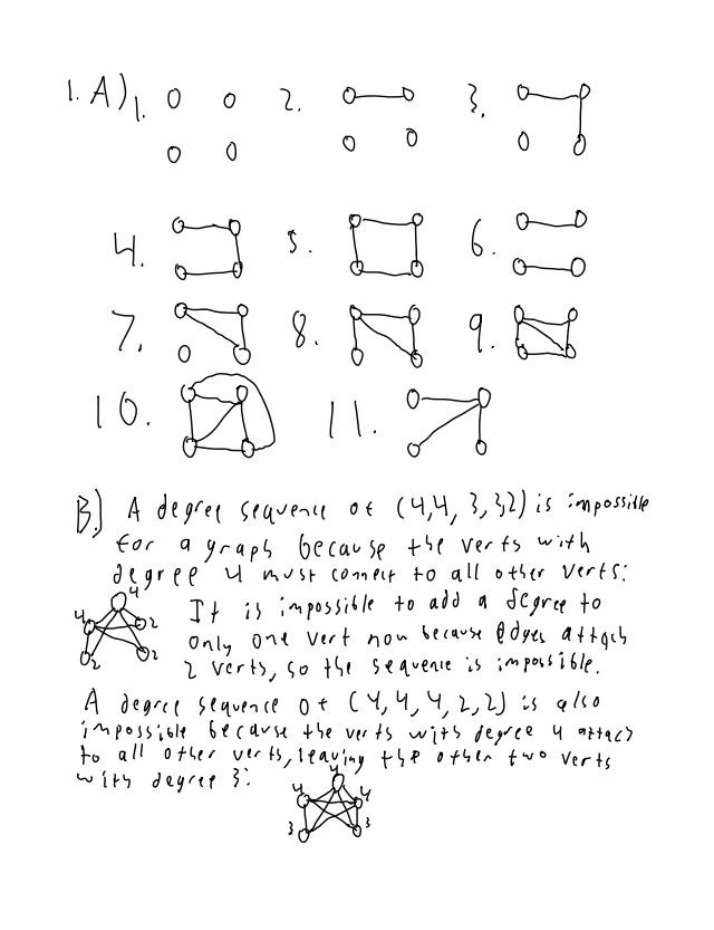 1. A) 1. 2. 3.
4. 5. 6.
7. 8. 9.
10. 11.
B.) A degree sequence of (4,4, 3,3,2) is impossible
for a graph because the verts with
degree 4 must connect to all other verts:
4
4 2
2 2
It is impossible to add a degree to
only one vert now because edges attach
2 verts, so the sequence is impossible.
A degree sequence of (4,4,4,2,2) is also
impossible because the verts with degree 4 attach
to all other verts, leaving the other two verts
with degree 3:
4
4 4
3 3